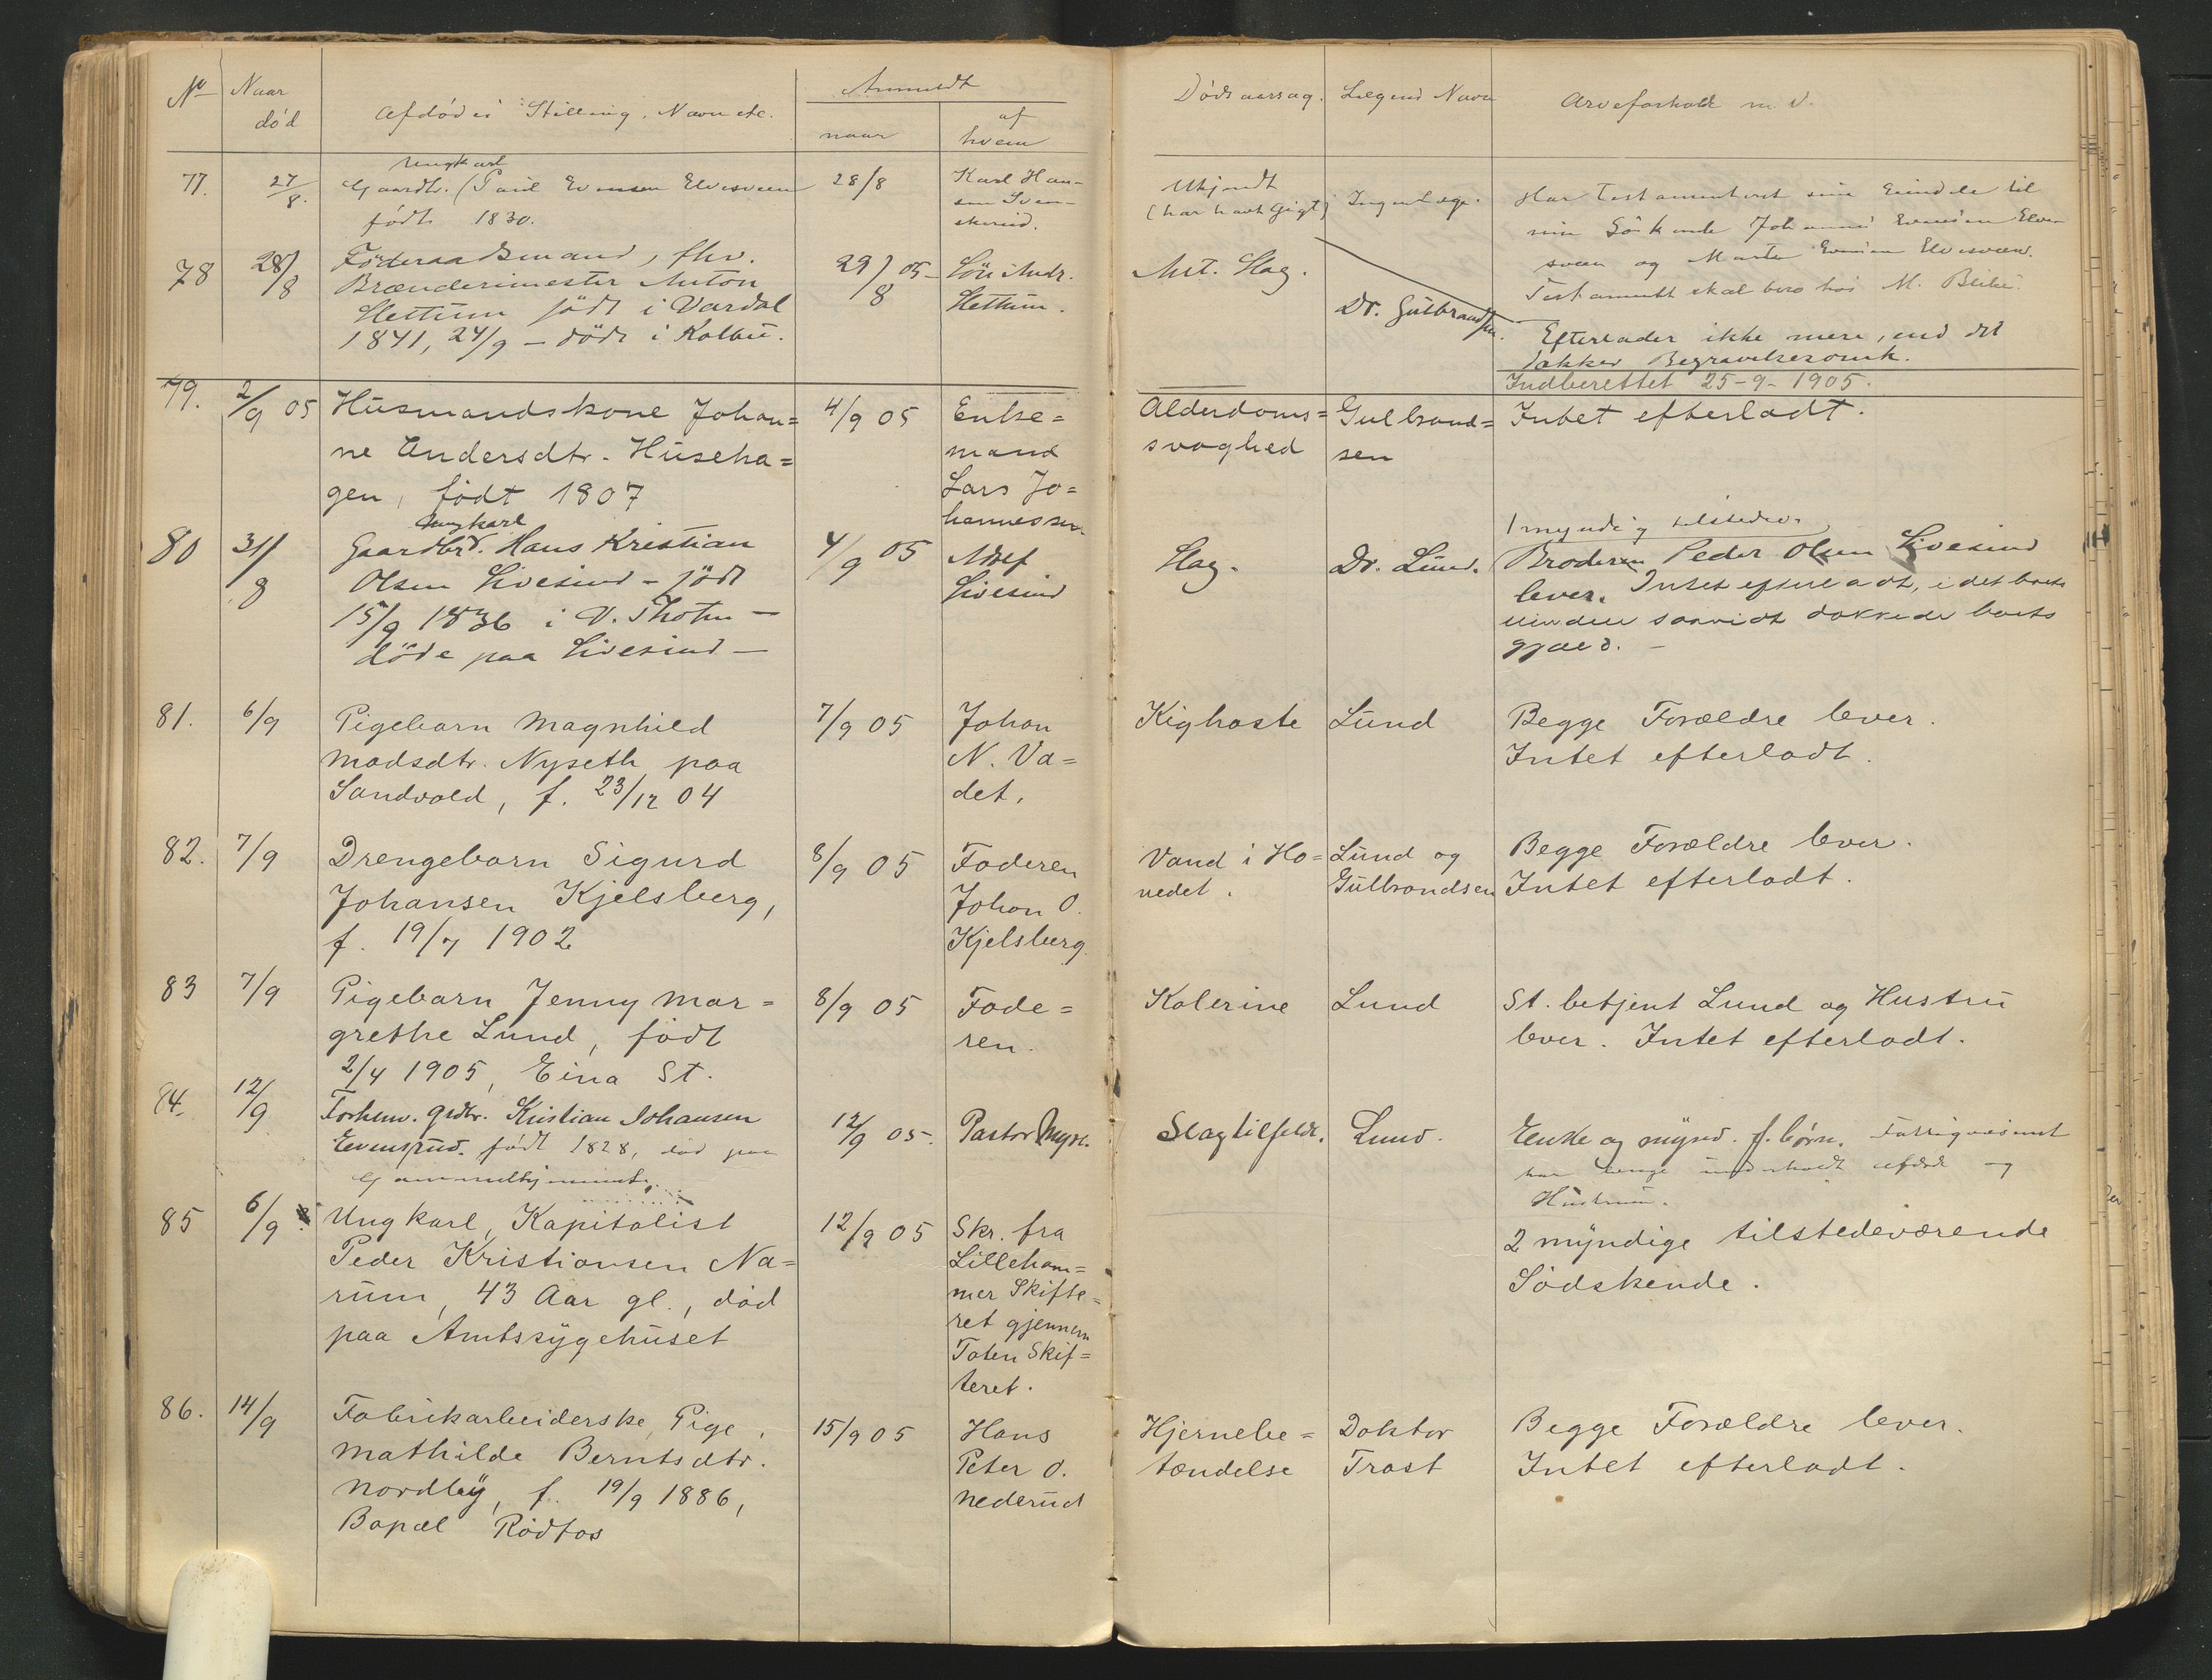 No
Naar
død
Afdødes Stilling, Navn etc.
Anmeldt
naar
af
hvem
Dødsaarsag.
Lægens Navn
Arveforhold m. v.
77.
27/8.
Ungkarl
Gaardbr. (Paul Evensen Elvesveen
født 1830.
28/8
Karl Han-
sen
Ukjendt
(har havt Gigt)
Ingen Læge.
Har testamenteret sine Eiendele til
sine Søskende Johannes Evensen Elve-
sveen og Marte Evensen Elvesveen.
Testamentet skal bero hos M.
78
28/8
Föderaadsmand, fhv.
Brænderimester Anton
Slettum født i Vardal
1841, 24/9 – døde i Kolbu.
29/8 05-
Søn Andr.
Slettum.
Ant. Slag.
Dr. Gulbrandsen.
Efterlader ikke mere, end det
dækker Begravelsesomk.
Indberettet 25-9-1905.
79.
2/9 05
Husmandskone Johan=
ne Andersdtr. Huseha=
gen, født 1807
4/9 05
Enke=
mand
Lars Jo=
hannessen
Alderdoms=
svaghed
Gulbrand=
sen
Intet efterladt.
80
31/8
Ungkarl
Gaardbr. Hans Kristian
Olsen Sivesind – født
15/9 1836 i V. Thoten –
døde paa Sivesind –
4/9 05
Adolf
Sivesind
Slag.
Dr. Lund.
1 myndig tilstedev.
Broderen Peder Olsen Sivesind
lever. Intet efterladt, idet boets
midler saavidt dækkede boets
gjæld. –
81.
6/9
Pigebarn Magnhild
Madsdtr. Nyseth paa
Sandvold, f. 23/12 04
7/9 05
Johan
N. Va=
det.
Kighoste
Lund
Begge Forældre lever.
Intet efterladt.
82.
7/9
Drengebarn Sigurd
Johansen Kjelsberg,
f. 19/7 1902
8/9 05
Faderen
Johan O.
Kjelsberg
Vand i Ho=
vedet.
Lund og
Gulbrandsen
Begge Forældre lever.
Intet efterladt.
83
7/9
Pigebarn Jenny Mar=
grethe Lund, født
2/4 1905, Eina St.
8/9 05
Fade=
ren.
Kolerine
Lund
St. betjent Lund og Hustru
lever. Intet efterladt.
84.
12/9
Forhenv. grdbr. Kristian Johansen
Evensrud. født 1828, død paa
Gammelhjemmet.
12/9 05.
Pastor Myhr.
Slagtilfelde.
Lund.
Enke og mynd. f. børn. Fattigvæsenet
har længe underholdt afdøde og
Hustruen.
85
6/9
Ungkarl, Kapitalist
Peder Kristiansen Na=
rum, 43 Aar gl., død
paa Amtssygehuset
12/9 05
Skr. fra
Lilleham=
mer Skifte=
ret gjennem
Toten Skif=
teret.
2 myndige tilstedeværende
Sødskende.
86.
14/9
Fabrikarbeiderske, Pige,
Mathilde Berntsdtr.
Nordby, f. 19/9 1886,
Bopæl Rødfos
15/9 05
Hans
Peter O.
Nederud
Hjernebe=
tændelse
Doktor
Trast
Begge Forældre lever.
Intet efterladt.